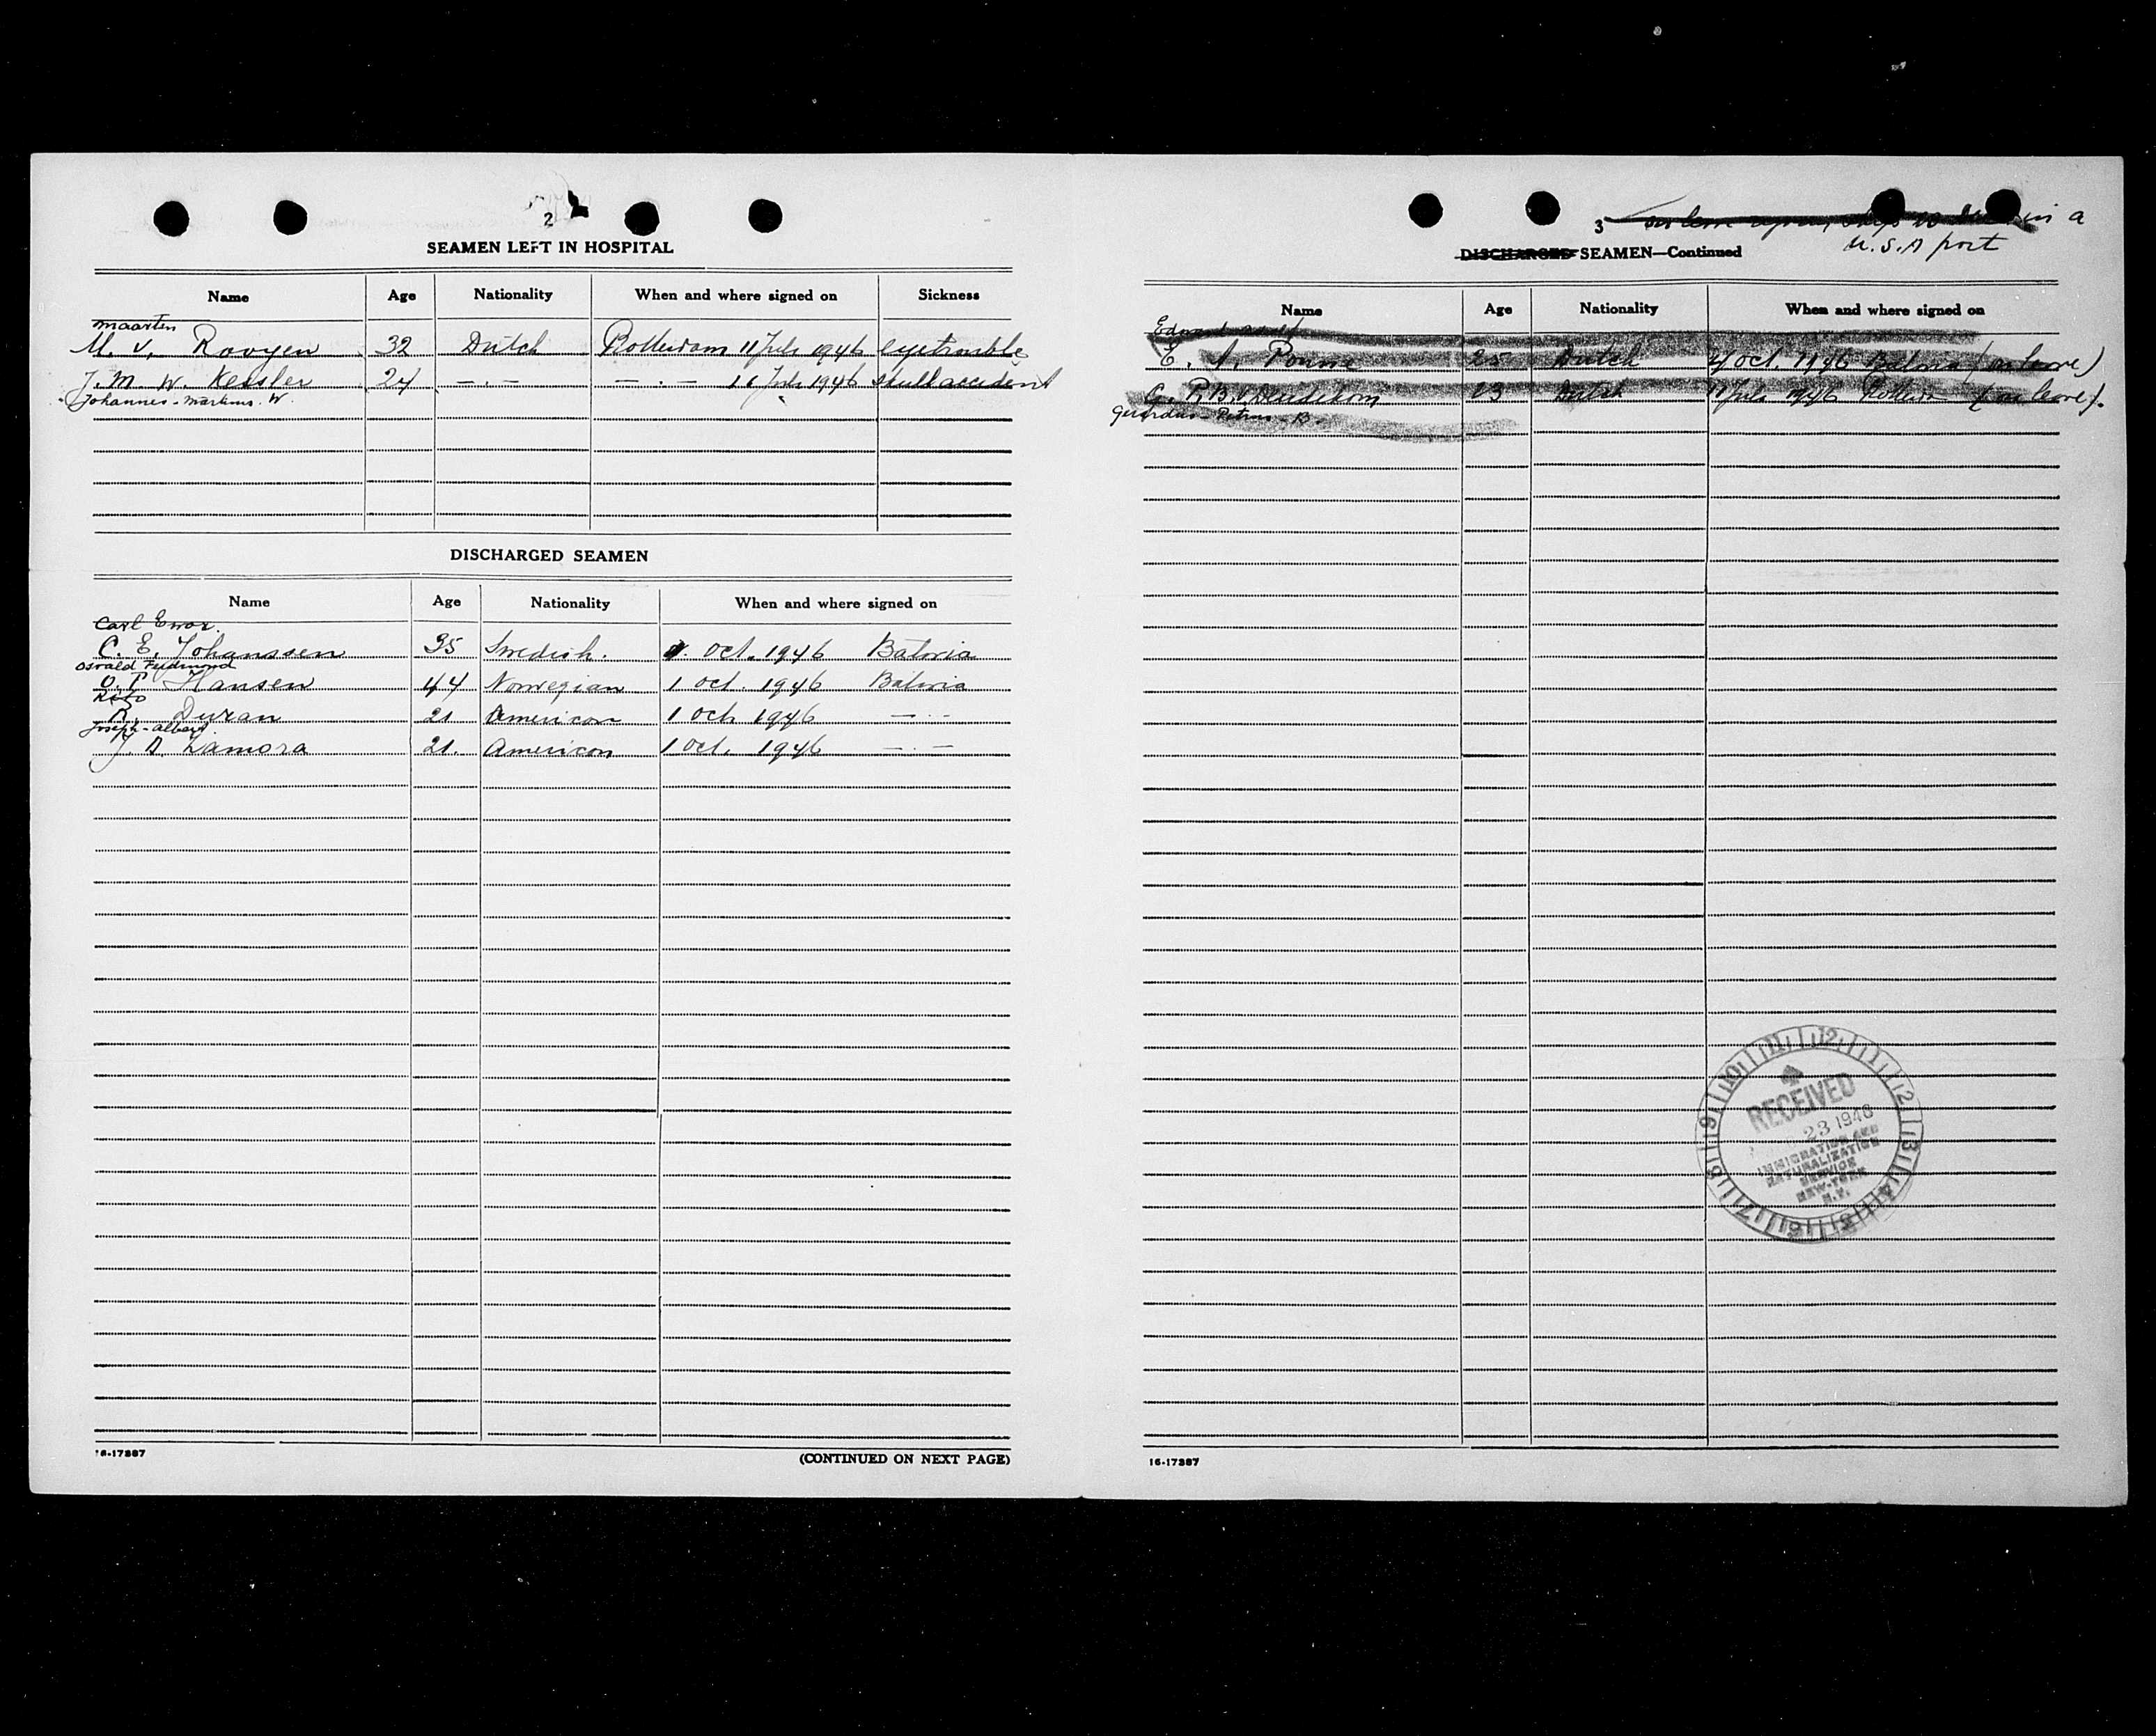 2
SEAMEN LEFT IN HOSPITAL
Name Age Nationality When and where signed on Sickness
Maarten
M. v. Rooyen 32 Dutch Rotterdam 11 July 1946 eyetrouble
J. M. W. Kessler 24 — . — — . — 16 July 1946 skull accident
Johannes - Martinus. W.
DISCHARGED SEAMEN
Name Age Nationality When and where signed on
Carl
C. E. Johanssen 35 Swedish. Oct. 1946 Batavia
Osvald
O. F Hansen 44 Norwegian 1 Oct. 1946 Batavia
R. Duran 21 American 1 Oct 1946 — . —
Joseph - Albert.
J. A. Zamora 21. American 1 Oct. 1946 — . —
16-17387
(CONTINUED ON NEXT PAGE)
3 in a
U.S.A port
DISCHARGED SEAMEN—Continued
Name Age Nationality When and where signed on
E. A. 25 Dutch Oct. 1946 Batavia (on leave)
G. P. B. 23 Dutch 11 July 1946 (on leave).
Gerardus - Petrus - B.
RECEIVED
23 1946
IMMIGRATION AND
NATURALIZATION
SERVICE
NEW-YORK
N.Y.
16-17387